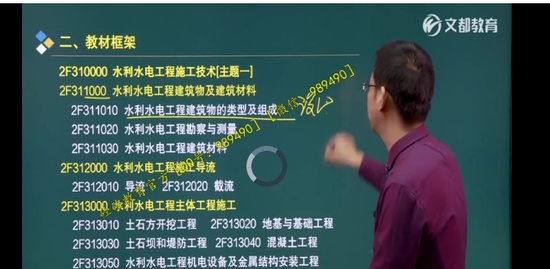 二、教材框架
文都教育
2F310000 水利水电工程施工技术[主题一]
2F311000 水利水电工程建筑物及建筑材料
2F311010 水利水电工程建筑物的类型及组成
2F311020 水利水电工程勘察与测量
2F311030 水利水电工程建筑材料
2F312000 水利水电工程施工导流
2F312010 导流 2F312020 截流
2F313000 水利水电工程主体工程施工
2F313010 土石方开挖工程 2F313020 地基与基础工程
2F313030 土石坝和堤防工程 2F313040 混凝土工程
2F313050 水利水电工程机电设备及金属结构安装工程